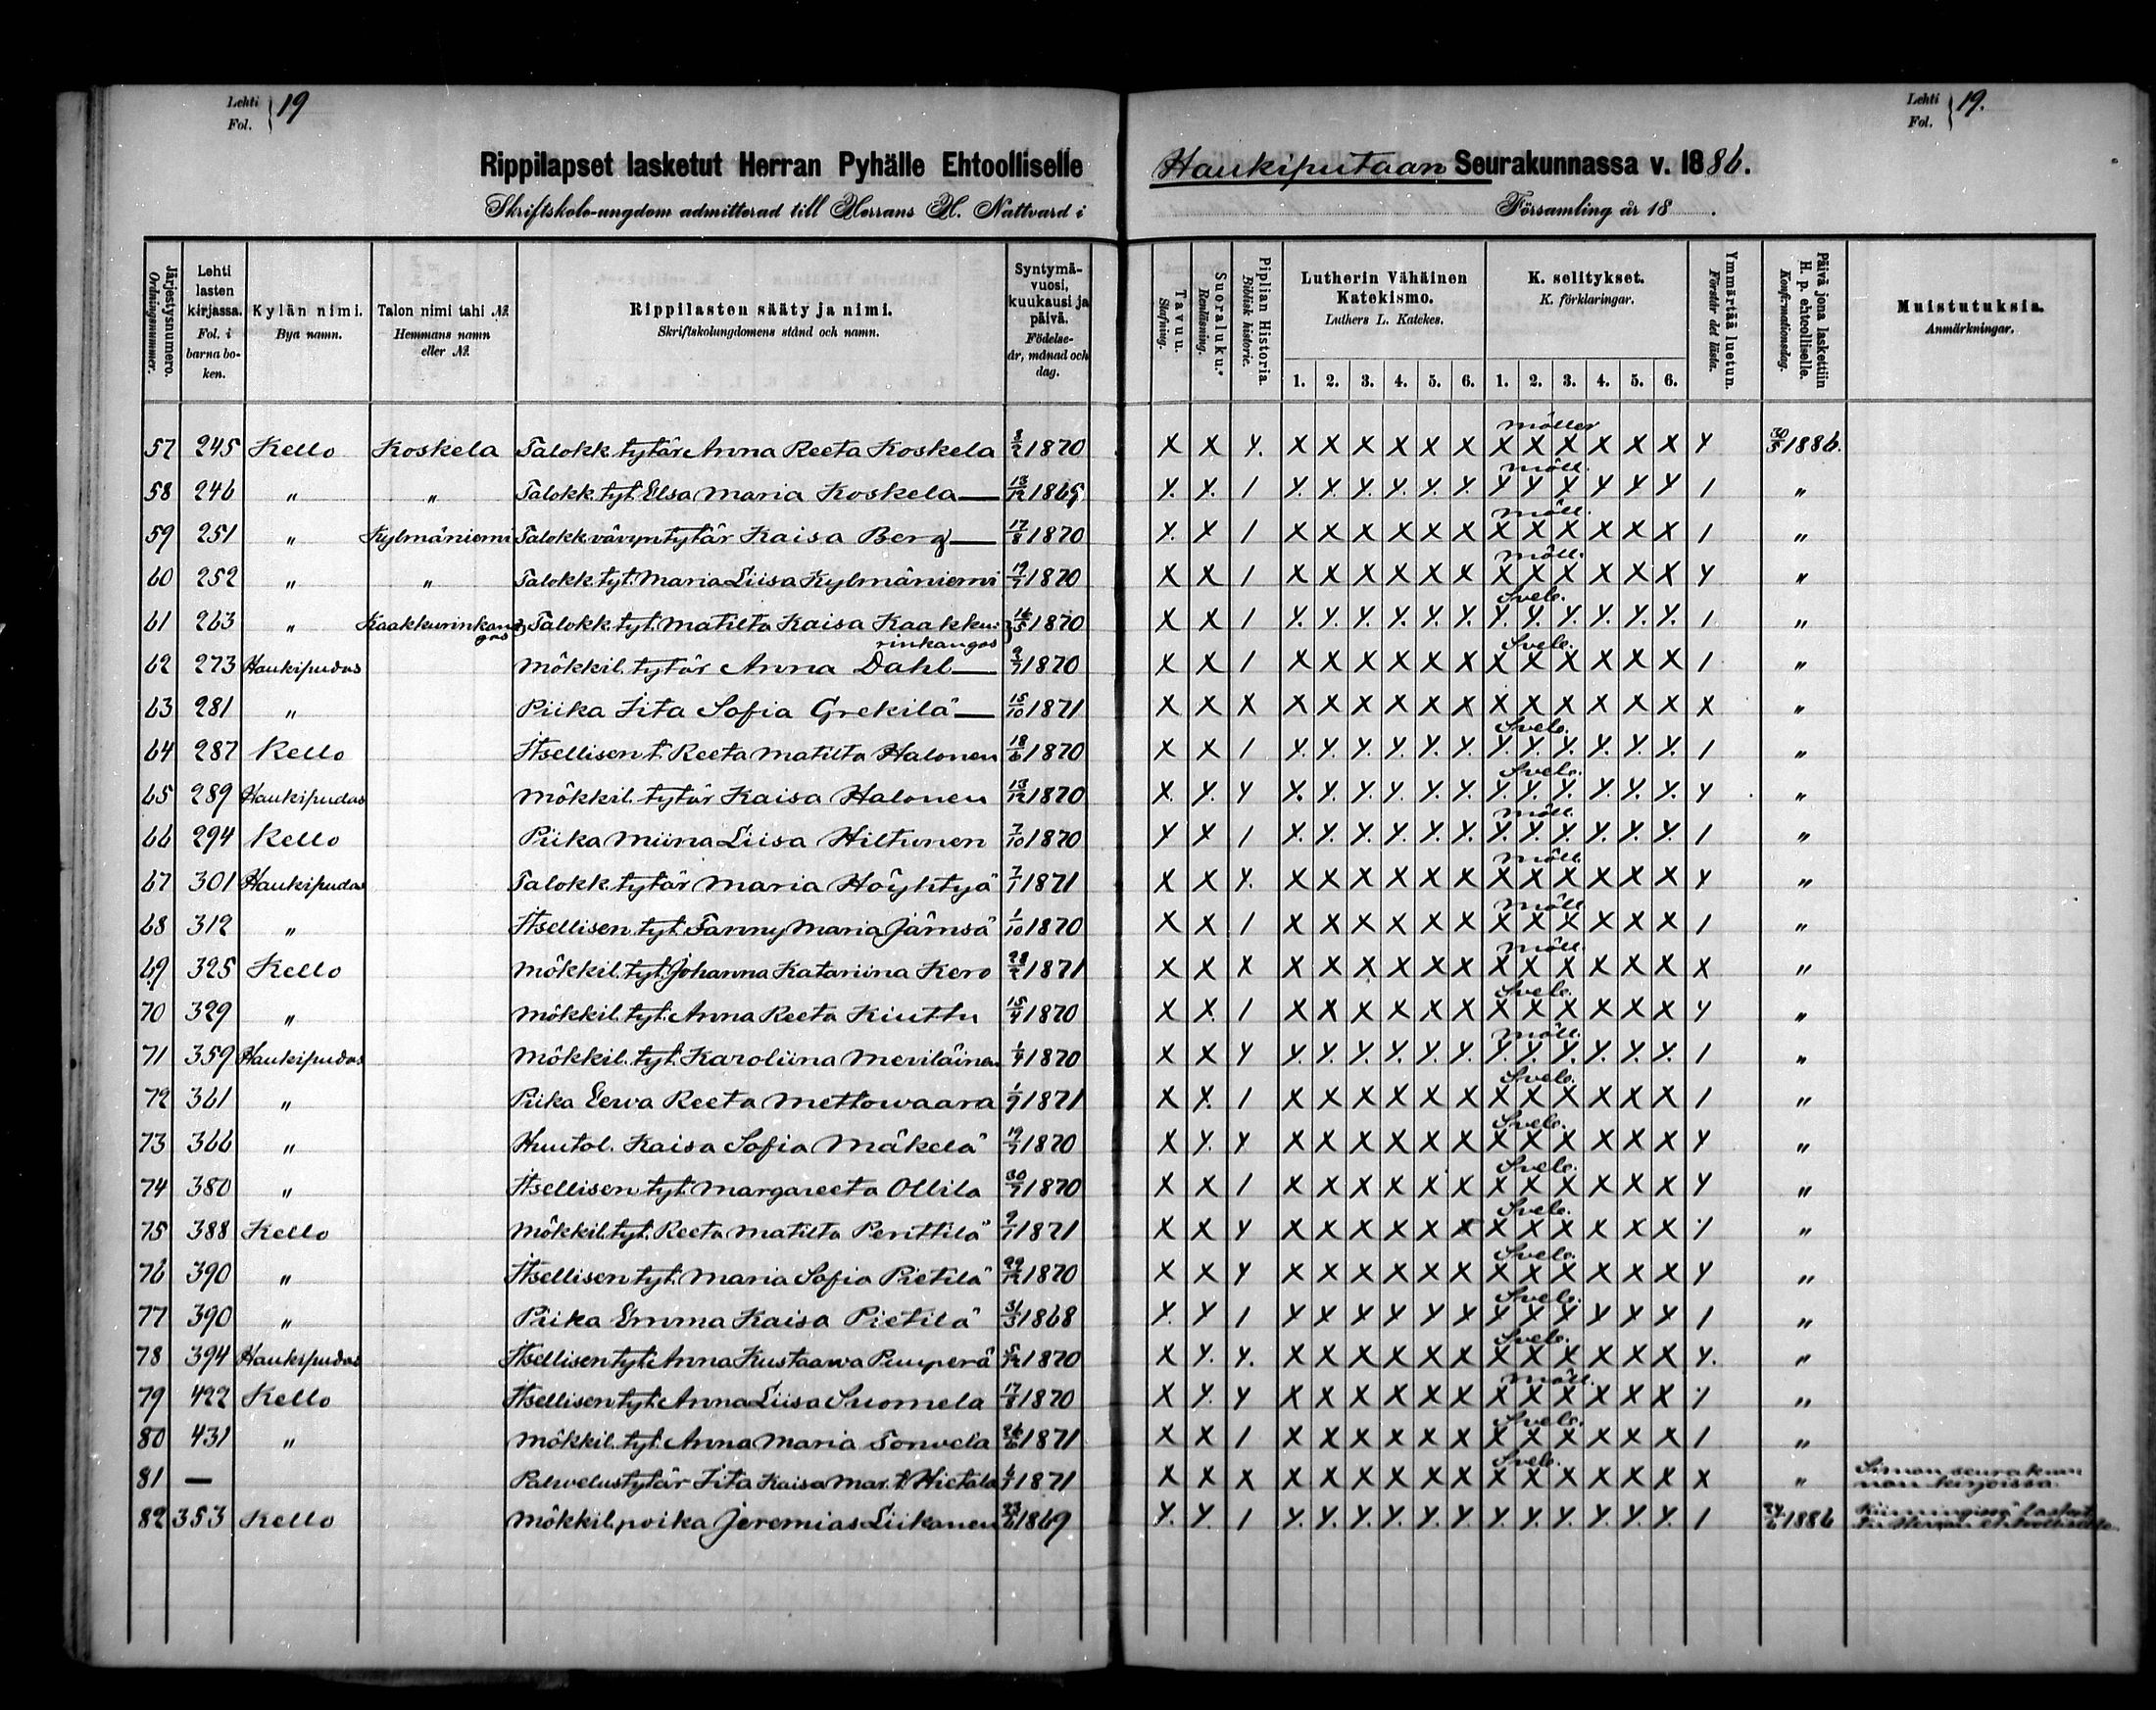 Lehti Fol. } 19
Lehti Fol. } 19.
Rippilapset lasketut Herran Pyhälle Ehtoolliselle Haukiputaan Seurakunnassa v. 1886.
Skriftskole-ungdom admitterad till Herrans H. Nattvard i Församling år 18 .
Järjestysnumero. Ordningsnummer. | Lehti lasten kirjassa. Fol. i barnaboken. | Kylän nimi. Bya namn. | Talon nimi tahi №. Hemmans namn eller №. | Rippilasten sääty ja nimi. Skriftskolungdomens stånd och namn. | Syntymä-vuosi, kuukausi ja päivä. Födelse-år, månad och dag. | Tavuu. Stafning. | Suoraluku. Renläsning. | Piplian Historia Biblisk historie. | Lutherin Vähäinen Katekismo. Luthers L. Katekes. 1. 2. 3. 4. 5. 6. | K. selitykset. K. förklaringar. 1. 2. 3. 4. 5. 6. | Ymmärtää luetun. Förstår det lästa. | Päivä jona laskettiin H. p. ehtoolliselle. Konfirmationsdag. | Muistutuksia. Anmärkningar.
57 245 Kello Koskela Talokk. tytär Anna Reeta Koskela 8/2 1870 X X Y. X X X X X X Möller X X X X X X Y 30/5 1886.
58 246 " " Talokk. tyt. Elsa Maria Koskela — 13/12 1869 Y. Y. 1 Y. Y. Y. Y. Y. Y. Möll. Y Y Y Y Y Y 1 "
59 251 " Kylmäniemi Talokk. vävyn tytär Kaisa Berg — 17/8 1870 Y. X 1 X X X X X X Möll. X X X X X X 1 "
60 252 " " Talokk. tyt. Maria Liisa Kylmäniemi 19/7 1870 X X 1 X X X X X X Möll. X X X X X X Y "
61 263 " Kaakkurinkangas Talokk. tyt. Matilta Kaisa Kaakkurinkangas 16/5 1870 X X 1 Y. Y. Y. Y. Y. Y. Sveb. Y. Y. Y. Y. Y. Y. 1 "
62 273 Haukipudas Mökkil. tytär Anna Dahl — 9/7 1870 X X 1 X X X X X X Sveb. X X X X X X 1 "
63 281 " Piika Iita Sofia Grekilä — 15/10 1871 X X X X X X X X X X X X X X X X "
64 287 Kello Itsellisen t. Reeta Matilta Halonen 18/6 1870 X X 1 Y. Y. Y. Y. Y. Y. Sveb. Y. Y. Y. Y. Y. Y. 1 "
65 289 Haukipudas Mökkil. tytär Kaisa Halonen 13/12 1870 X. Y. Y X. Y. Y. Y. Y. Y. Sveb. Y. Y. Y. Y. Y. Y. Y "
66 294 Kello Piika Miina Liisa Hiltunen 7/10 1870 Y X 1 Y. Y. Y. Y. Y. Y. Möll. Y. Y. Y. Y. Y. Y. 1 "
67 301 Haukipudas Talokk. tytär Maria Höyhtyä 7/1 1871 X X Y. X X X X X X Möll. X X X X X X Y "
68 312 " Itsellisen tyt. Fanny Maria Jämsä 1/10 1870 X X 1 X X X X X X Möll. X X X X X X 1 "
69 325 Kello Mökkil. tyt. Johanna Katariina Kero 28/2 1871 X X X X X X X X X Möll. X X X X X X X "
70 329 " Mökkil. tyt. Anna Reeta Kiuttu 15/4 1870 X X. 1 X X X X X X Sveb. X X X X X X Y "
71 359 Haukipudas Mökkil. tyt. Karoliina Meriläinen 1/4 1870 X X Y Y. Y. Y. Y. Y. Y. Möll. Y. Y. Y. Y. Y. Y. 1 "
72 361 " Piika Eewa Reeta Mettowaara 1/9 1871 X Y. 1 X X X X X X Sveb. X X X X X X 1 "
73 366 " Huutol. Kaisa Sofia Mäkelä 19/7 1870 X Y. Y X X X X X X Sveb. X X X X X X Y "
74 380 " Itsellisen tyt. Margareeta Ollila 30/7 1870 X X 1 X X X X X X Sveb. X X X X X X Y "
75 388 Kello Mökkil. tyt. Reeta Matilta Penttilä 9/1 1871 X X Y X X X X X X Sveb. X X X X X X 1 "
76 390 " Itsellisen tyt. Maria Sofia Pietilä 29/12 1870 X X Y X X X X X X Sveb. X X X X X X Y "
77 390 " Piika Emma Kaisa Pietilä 31/3 1868 Y. Y 1 Y Y Y Y Y Y Sveb. Y Y Y Y Y Y 1 "
78 394 Haukipudas Itsellisen tyt. Anna Kustaawa Pumperä 5/12 1870 X Y. Y. X X X X X X Sveb. X X X X X X Y. "
79 422 Kello Itsellisen tyt. Anna Liisa Suomela 17/8 1870 X Y. Y X X X X X X Möll. X X X X X X 1 "
80 431 " Mökkil. tyt. Anna Maria Torvela 26/6 1871 X X 1 X X X X X X Sveb. X X X X X X 1 "
81 — Palwelustytär Iita Kaisa Mar. t. Hietala 6/1 1871 X X X X X X X X X Sveb. X X X X X X X " Simon seurakunnan kirjoissa.
82 353 Kello Mökkil. poika Jeremias Liikanen 23/6 1869 Y. Y. 1 Y. Y. Y. Y. Y. Y. Y. Y. Y. Y. Y. Y. 1 24/6 1886 Kiimingissä laskettu Herran Ehtoolliselle.